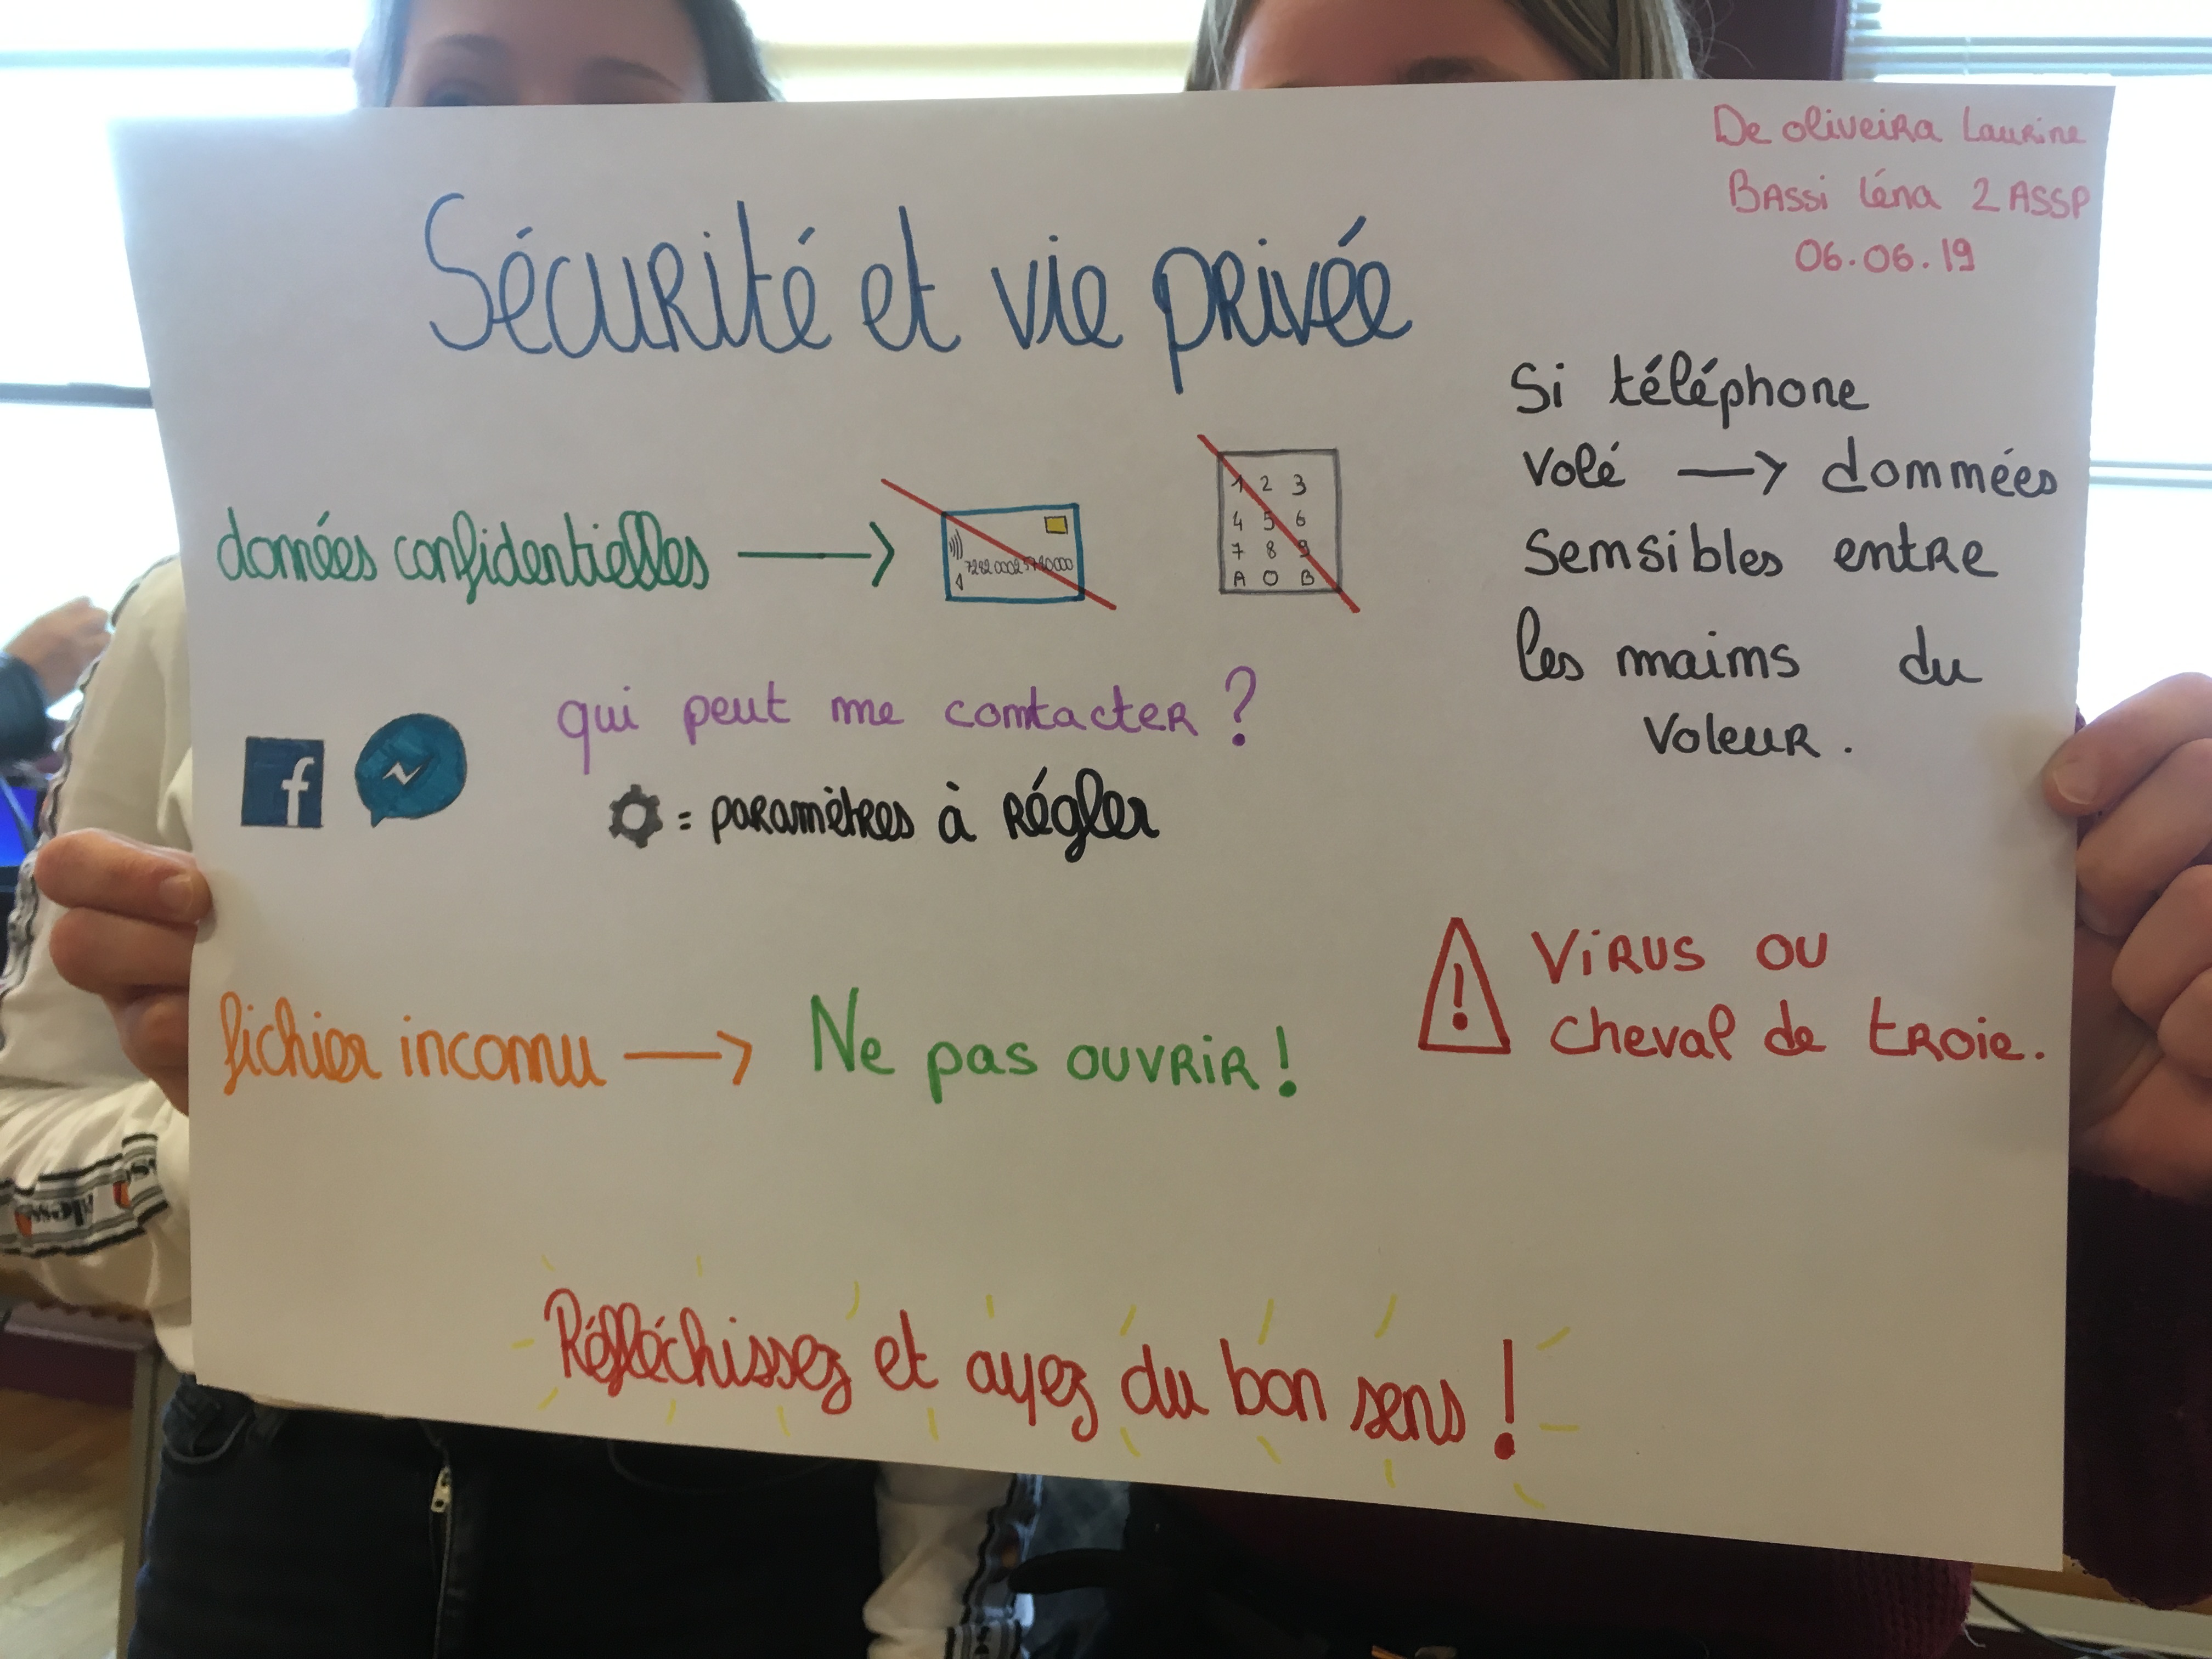 De oliveira Laurine
BASSi Léna 2 ASSP
06.06.19
Sécurité et vie privée
Si téléphone
volé → données
sensibles entre
les mains du
voleur.
données confidentielles →
1 2 3
4 5 6
7 8 9
A 0 B
f
qui peut me contacter ?
= paramètres à régler
fichier inconnu → Ne pas ouvrir !
! Virus ou
cheval de troie.
Réfléchissez et ayez du bon sens !